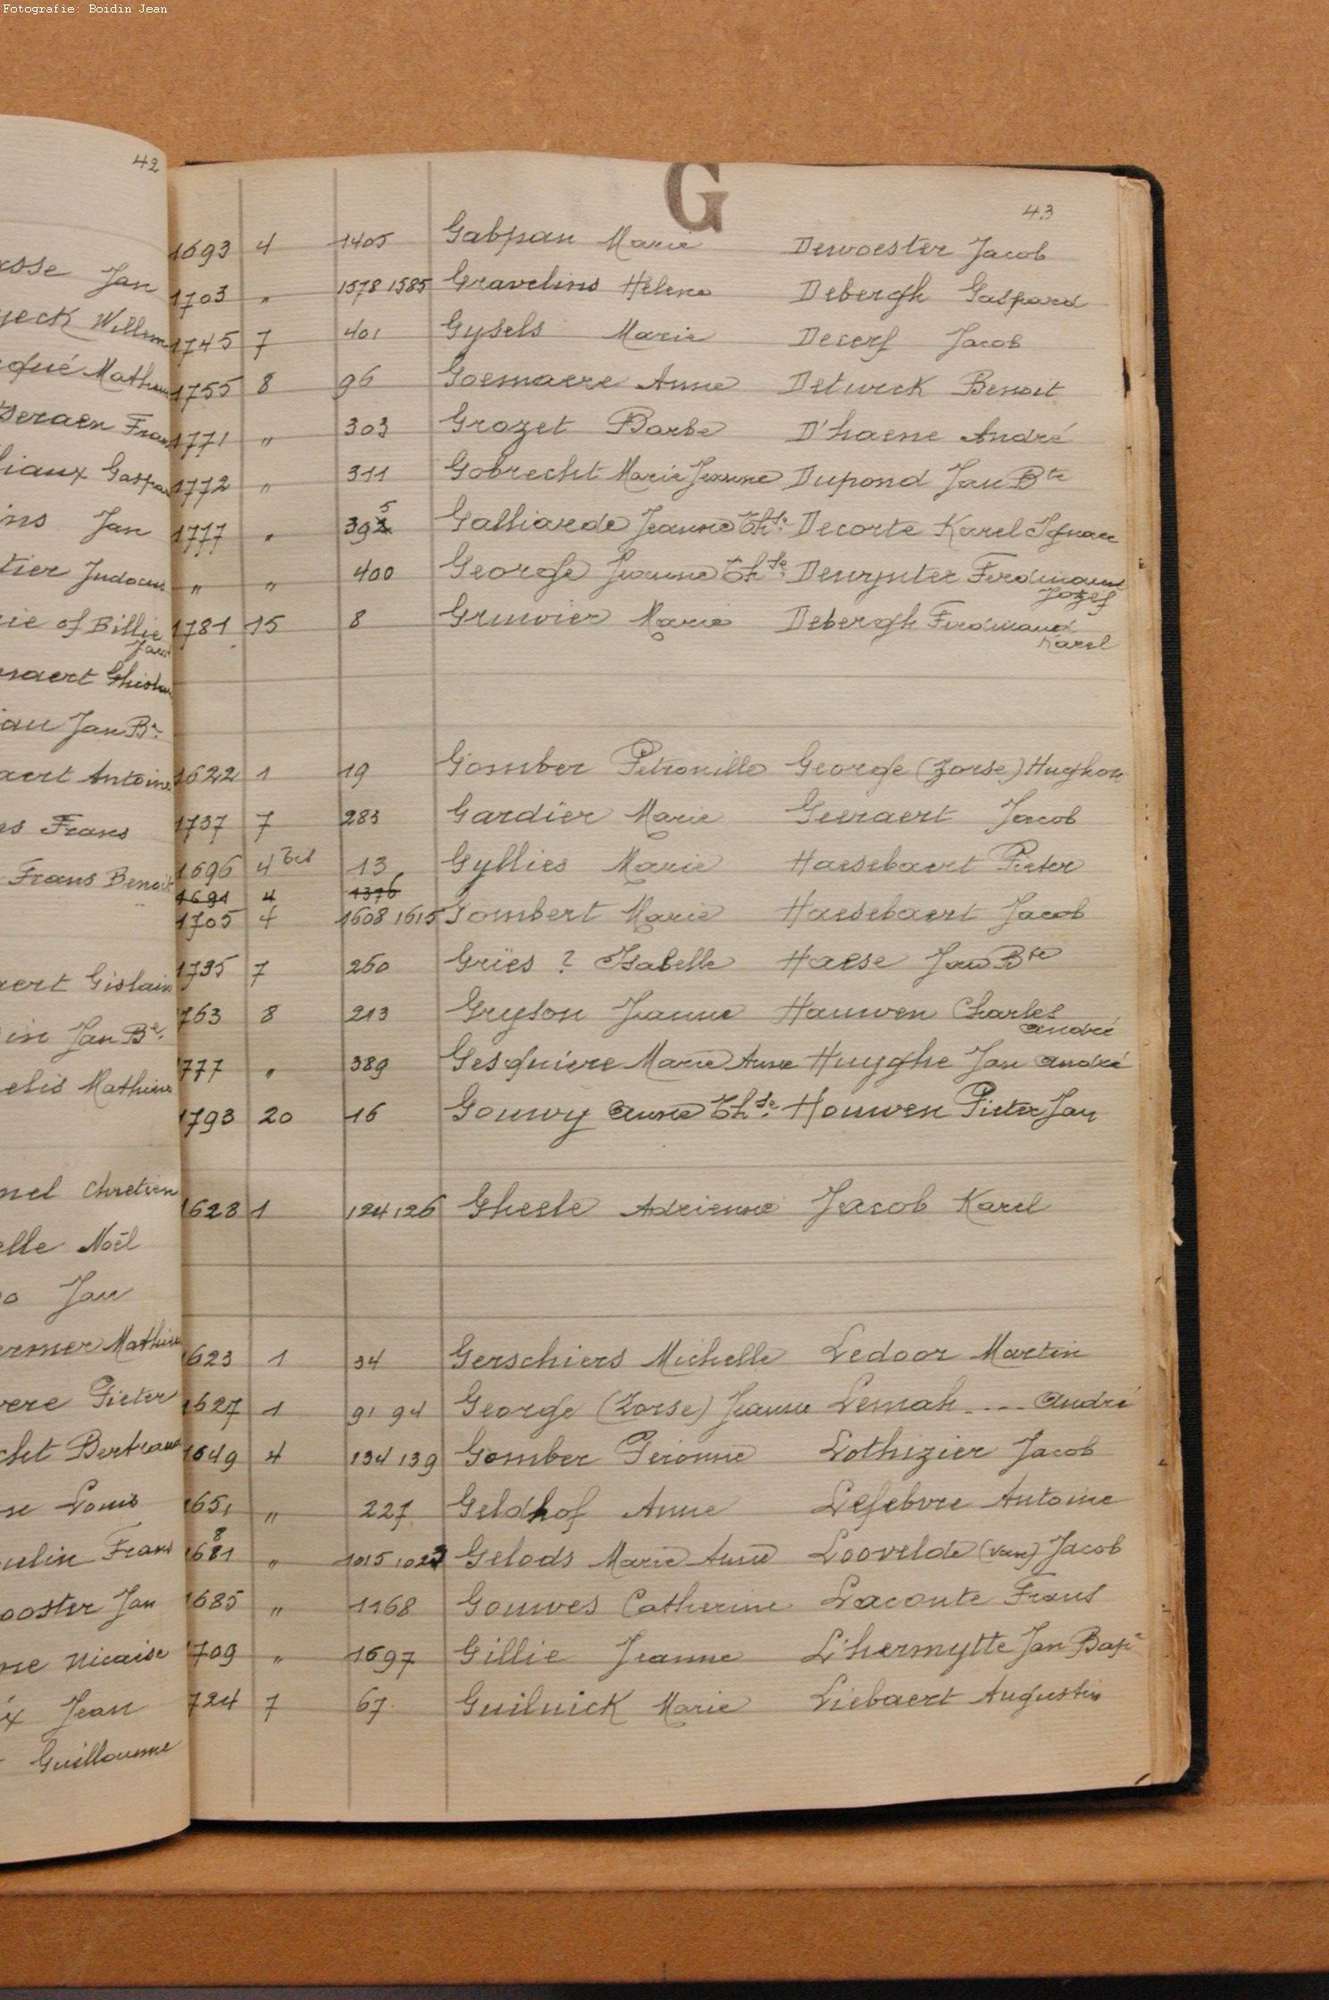 Fotografie: Boidin Jean
42
Jan
Willem
Gaspar
Jan
of Billie
Jan Bte
Antoine
Frans
Frans Benoit
Gislain
Jan Bte
Chretien
Noël
Jan
Pieter
Jan
Nicaise
Jean
Guillaume
G
43
1693 4 1405 Gabpan Marie Dewoester Jacob
1703 " 1578 1585 Gravelins Hélène Debergh Gaspard
1745 7 401 Gysels Marie Decerf Jacob
1755 8 96 Goemaere Anne Deturck Benoit
1771 " 303 Grozet Barbe D'haene André
1772 " 311 Gobrecht Marie Jeanne Dupond Jan Bte
1777 " 395 Galliaerde Jeanne Thse Decorte Karel Ignace
" " 400 George Jeanne Thse Deurynter Ferdinand
Jozef
1781 15 8 Gruwier Marie Debergh Ferdinand
Karel
1622 1 19 Gomber Petronille George (Zorse) Hughon
1737 7 283 Gardier Marie Geeraert Jacob
1696 4 bis 13 Gyllies Marie Haesebaert Pieter
1691 4 1376
1705 4 1608 1615 Gombert Marie Haesebaert Jacob
1735 7 250 Griës ? Isabelle Haese Jan Bte
1763 8 213 Gryson Jeanne Hauwen Charles
André
1777 " 389 Gesquiere Marie Anne Huyghe Jan André
1793 20 16 Gouwy Anne Thse Houwen Pieter Jan
1628 1 124 126 Gheele Adrienne Jacob Karel
1623 1 34 Gerschiers Michelle Ledoor Martin
1627 1 91 94 George (Zorse) Jeanne Lemah .... André
1649 4 134 139 Gomber Péronne Lothizier Jacob
1651 " 227 Geldhof Anne Lefebvre Antoine
1681 " 1015 1023 Gelods Marie Anne Loovelde (van) Jacob
1685 " 1168 Gouwes Catherine Laconte Frans
1709 " 1697 Gillie Jeanne L'hermytte Jan Bapt
1724 7 67 Guilnick Marie Liebaert Augustin